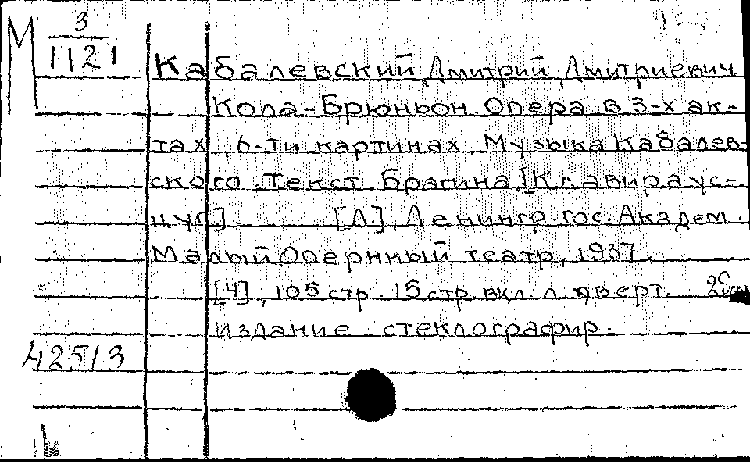 М 3
1121
Кабалевский, Дмитрий Дмитриевич
Кола-Брюньон. Опера в 3-х ак-
тах, 6-ти картинах. Музыка Кабалев-
ского. Текст Брагина [Клавираус-
цуг] [Л], Ленингр. гос. Академ.
Малый Оперный театр, 1937.
[4], 105 стр. 15 стр. вкл. л.
издание стеклографир.
42513